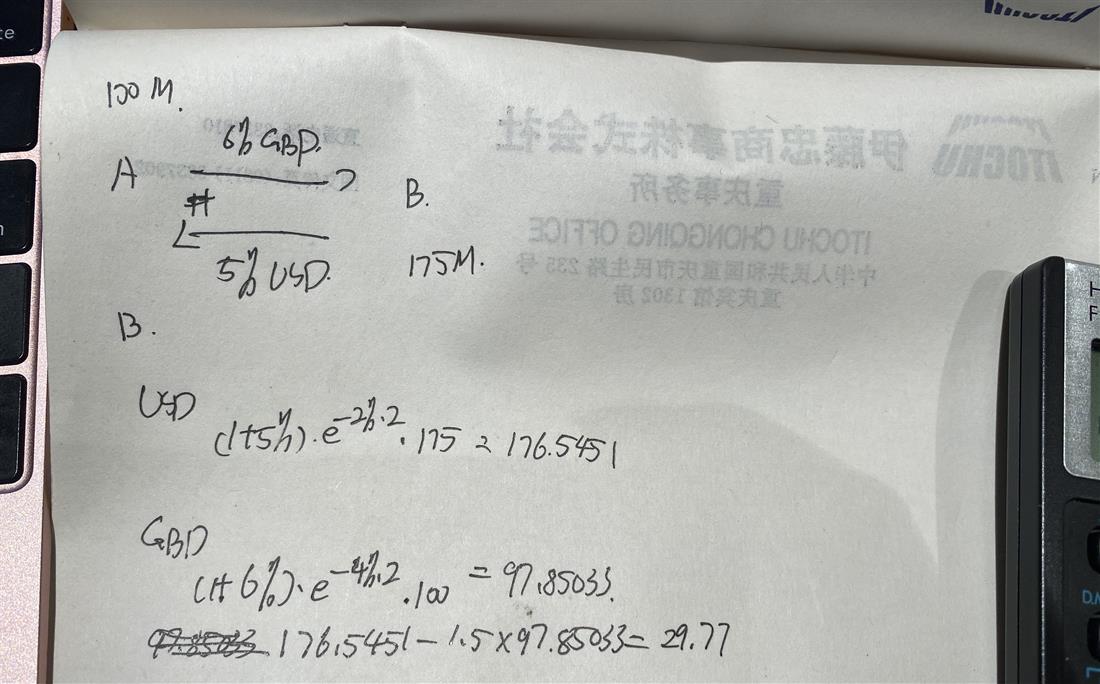 te
100 M.
6% GBD.
A
B.
5% USD.
175M.
B.
USD
(1+5%).e^-2%.2 . 175 = 176.5451
GBD
(1+6%).e^-4%.2 . 100 = 97.85033.
176.5451 - 1.5×97.85033 = 29.77
伊藤忠商事株式会社
ITOCHU
重庆事务所
ITOCHU CHONGQING OFFICE
中华人民共和国重庆市民生路 235 号
重庆宾馆 1302 房